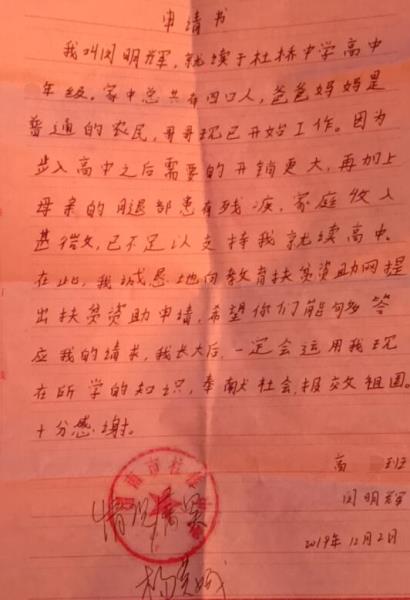 申请书
我叫闵明辉,就续于杜桥中学高中
年级。家中总共有四口人,爸爸妈妈是
普通的农民,哥哥现已开始工作。因为
步入高中之后需要的开销更大,再加上
母亲的腿部患有残疾,家庭收入
甚微,已不足以支持我就续高中。
在此,我诚恳地向教育扶贫资助网提
出扶贫资助申请,希望你们能够答
应我的请求,我长大后,一定会运用我现
在所学的知识,奉献社会,报效祖国。
十分感谢。
高 班
闵明辉
2019年12月2日
情况属实